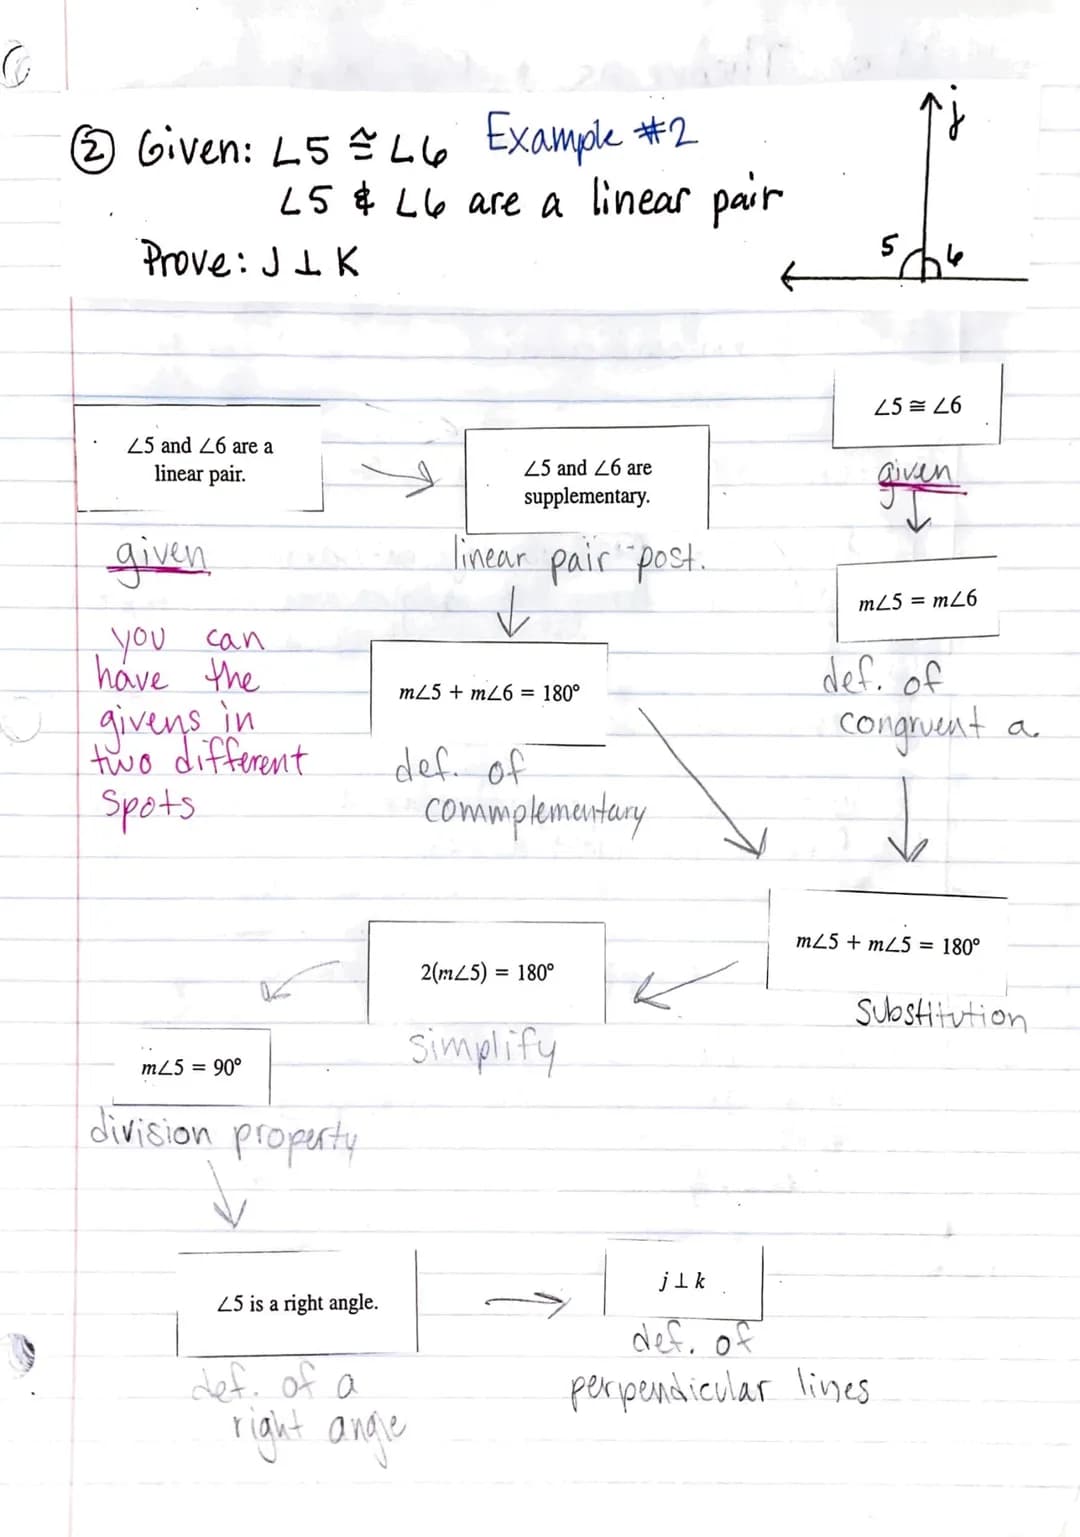 ② Given: ∠5 ≅ ∠6 Example #2
∠5 & ∠6 are a linear pair
Prove: J ⊥ K
j
5 6
∠5 ≅ ∠6
given
∠5 and ∠6 are a
linear pair.
given
∠5 and ∠6 are
supplementary.
linear pair post.
m∠5 = m∠6
def. of
congruent a.
you can
have the
givens in
two different
spots
m∠5 + m∠6 = 180°
def. of
commplementary
m∠5 + m∠5 = 180°
Substitution
2(m∠5) = 180°
simplify
m∠5 = 90°
division property
∠5 is a right angle.
def. of a
right angle
j ⊥ k
def. of
perpendicular lines